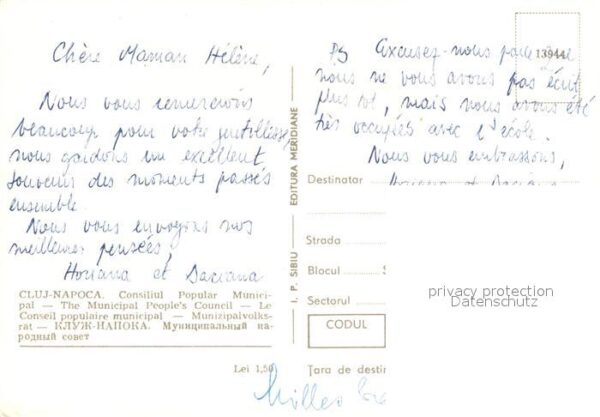 Chère Maman Hélène,
Nous vous remercions
beaucoup pour votre gentillesse
nous gardons un excellent
souvenir des moments passés
ensemble.
Nous vous envoyons nos
meilleures pensées,
Horiana et Daciana
CLUJ-NAPOCA. Consiliul Popular Munici-
pal — The Municipal People's Council — Le
Conseil populaire municipal — Munizipalvolks-
rat — КЛУЖ-НАПОКА. Муниципальный на-
родный совет
Lei 1,50
I. P. SIBIU
EDITURA MERIDIANE
13944
PS Excusez-nous parce que
nous ne vous avons pas écrit
plus tôt, mais nous avons été
très occupées avec l'école.
Nous vous embrassons,
Horiana et Daciana
Destinatar
Strada
Blocul
Sectorul
CODUL
Țara de destin
privacy protection
Datenschutz